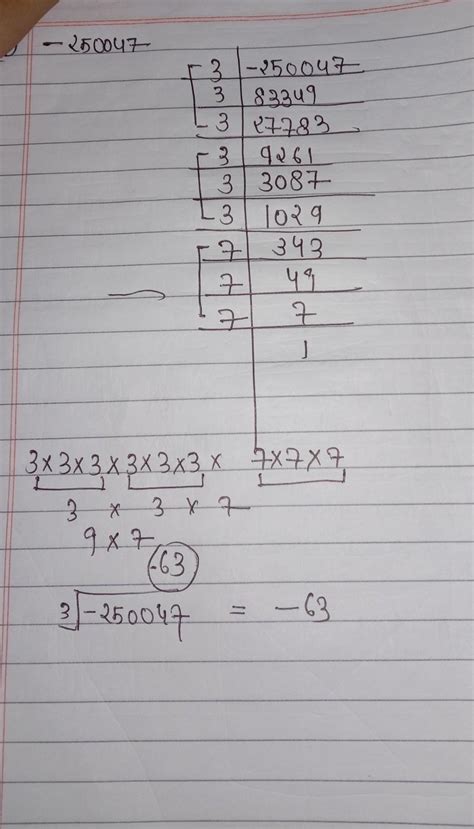 -250047
3 | -250047
3 | 83349
3 | 27783
3 | 9261
3 | 3087
3 | 1029
7 | 343
7 | 49
7 | 7
1
3×3×3×3×3×3× 7×7×7
3 × 3 × 7
9×7
-63
3√-250047 = -63